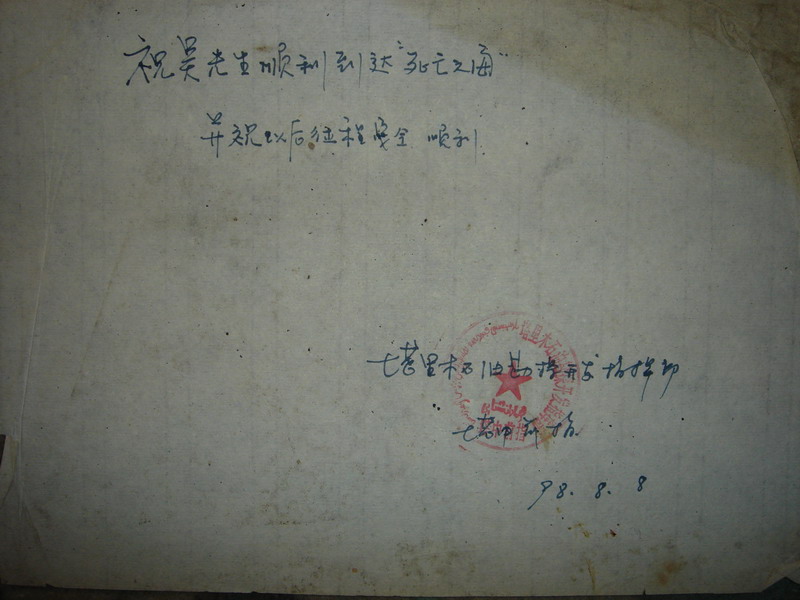 祝吴先生顺利到达“死亡之海”
并祝以后征程安全 顺利
塔里木石油勘探开发指挥部
塔中前指
98.8.8